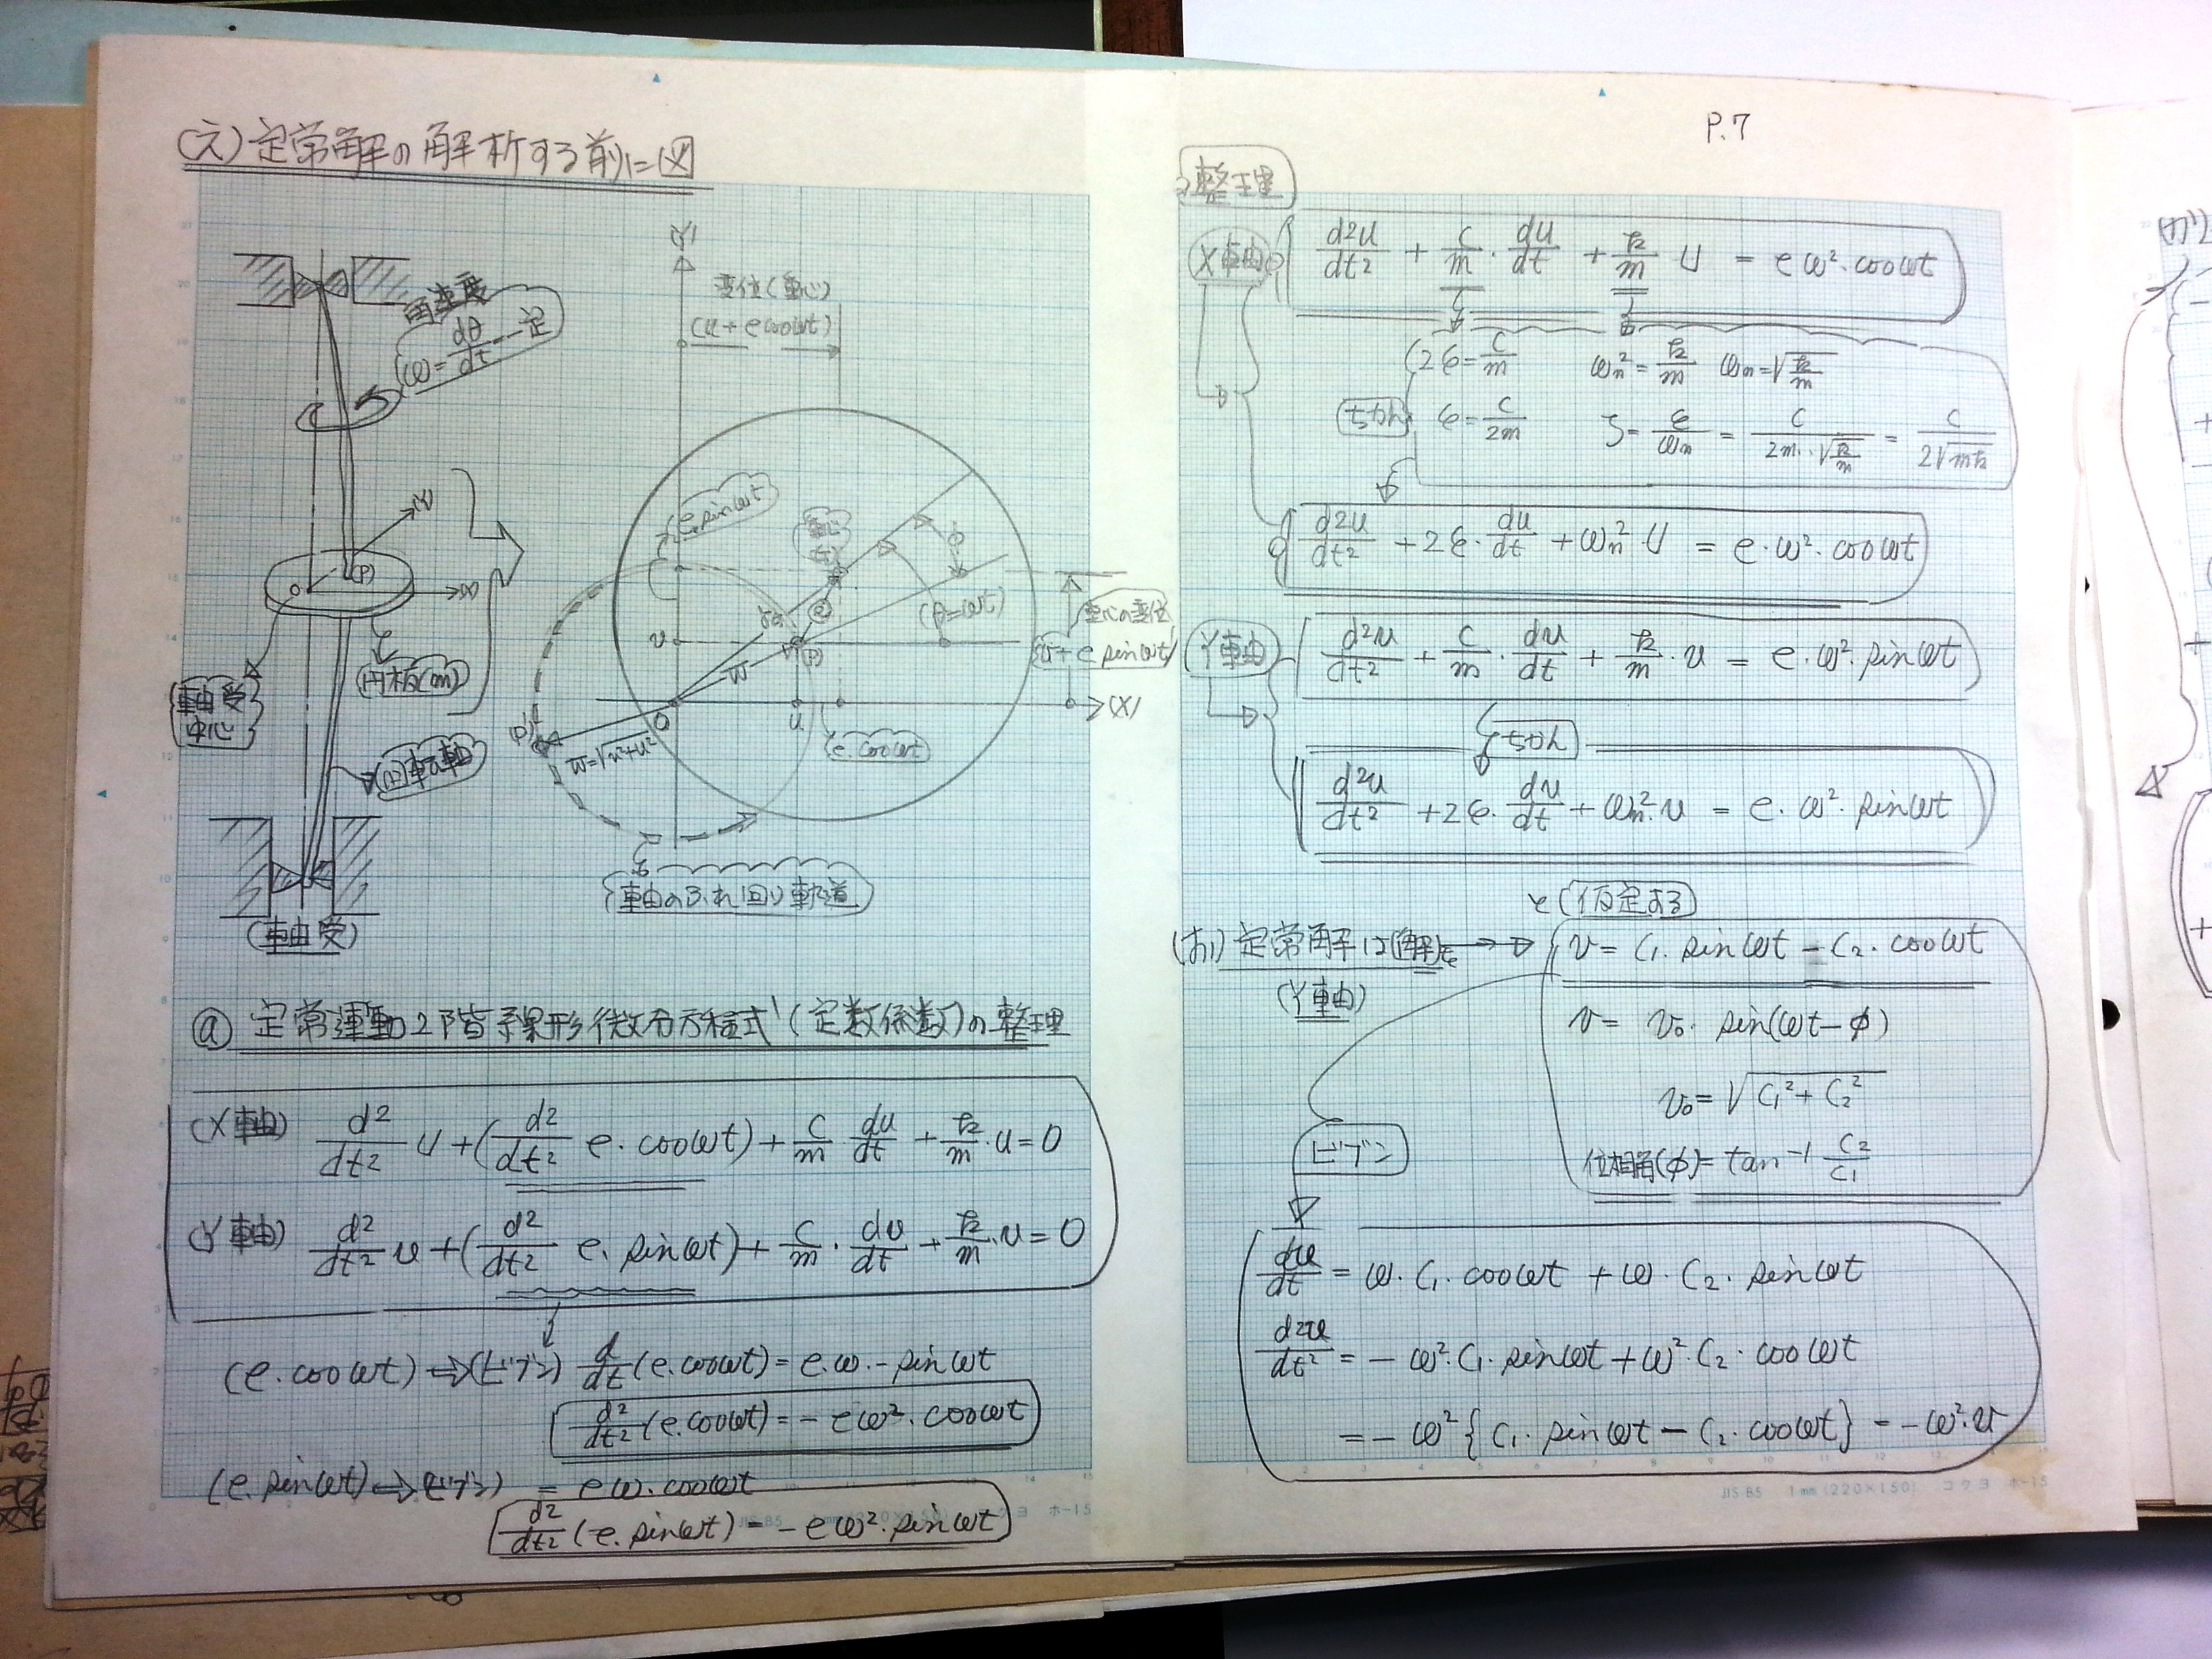 (え)定常解の解析する前に図
角速度
ω=dθ/dt 一定
(Y)
(P)
O
(X)
円板(m)
軸受
中心
回転軸
(軸受)
(Y)
変位(重心)
(u+e cosωt)
e.sinωt
重心
e
φ
(β=ωt)
重心の変位
v+e sinωt
v
(P)
w
O
u
(X)
e.cosωt
P'
w=√u²+v²
軸のふれ回り軌道
ⓐ 定常運動2階線形微分方程式(定数係数)の整理
(X軸) d²/dt² u+(d²/dt² e.cosωt)+c/m du/dt+k/m.u=0
(Y軸) d²/dt² v+(d²/dt² e.sinωt)+c/m・dv/dt+k/m.v=0
(e.cosωt)⇒(ビブン) d/dt(e.cosωt)=e.ω.-sinωt
d²/dt²(e.cosωt)=-eω².cosωt
(e.sinωt)⇒(ビブン) =eω.cosωt
d²/dt²(e.sinωt)=-eω².sinωt
P.7
整理
(X軸) d²u/dt²+c/m・du/dt+k/m u=eω².cosωt
2ε=c/m ωn²=k/m ωn=√k/m
ちかん ε=c/2m ζ=ε/ωn=c/2m.√k/m=c/2√mk
d²u/dt²+2ε.du/dt+ωn² u=e.ω².cosωt
(Y軸) d²v/dt²+c/m・dv/dt+k/m.v=e.ω².sinωt
ちかん
d²v/dt²+2ε.dv/dt+ωn².v=e.ω².sinωt
と仮定する
(お)定常解は(解)を→ v=C₁.sinωt-C₂.cosωt
(Y軸)
v=v₀.sin(ωt-φ)
v₀=√C₁²+C₂²
位相角(φ)=tan-1 C₂/C₁
ビブン
dv/dt=ω.C₁.cosωt+ω.C₂.sinωt
d²v/dt²=-ω².C₁.sinωt+ω².C₂.cosωt
=-ω²{C₁.sinωt-C₂.cosωt}=-ω².v
JIS B5 1mm(220×150) コクヨ ホ-15